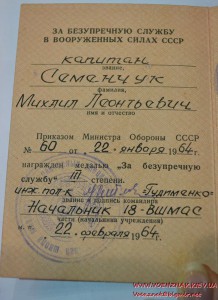 ЗА БЕЗУПРЕЧНУЮ СЛУЖБУ
В ВООРУЖЕННЫХ СИЛАХ СССР
капитан
звание,
Семенчук
фамилия,
Михаил Леонтьевич
имя и отчество
Приказом Министра Обороны СССР
№ 60 от "22" января 1964 г.
награжден медалью "За безупречную
службу" III степени.
инж. пол-к Гудименко
звание и подпись командира
Начальник 18-ВШМАС
части (начальника учреждения)
"22" февраля 1964 г.